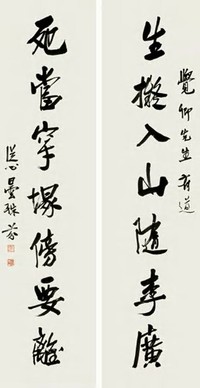 覺仰先生有道
生擬入山隨李廣
死當穿塚傍要離